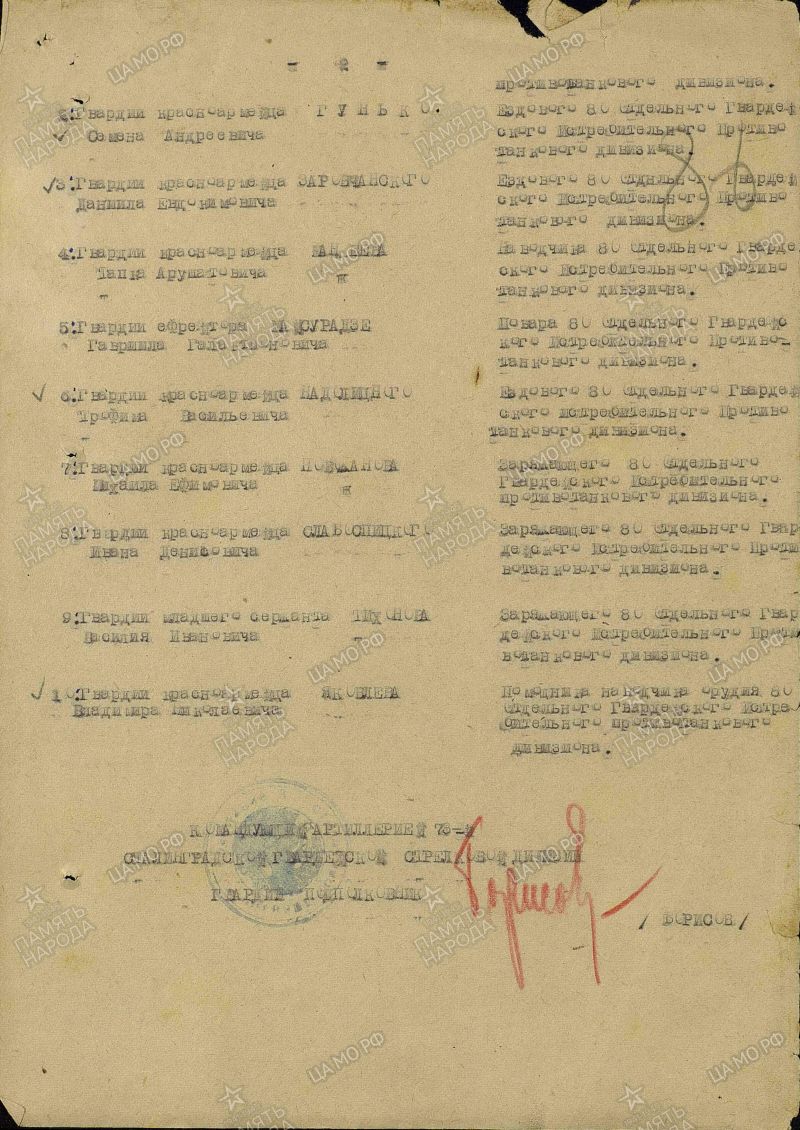 - 2 -
противотанкового дивизиона.
2.Гвардии красноармейца ГУНЬКО.
Семена Андреевича
Ездового 80 Отдельного Гвардей
ского Истребительного Противо
танкового дивизиона.
36
3.Гвардии красноармейца ЗАРОВЧАНСКОГО
Даниила Евдокимовича
Ездового 80 Отдельного Гвардей
ского Истребительного Противо
танкового дивизиона.
4.Гвардии красноармейца
Тапка Арушатовича
Наводчика 80 Отдельного Гвардей
ского Истребительного Противо
танкового дивизиона.
5.Гвардии ефрейтора МАЙСУРАДЗЕ
Гавриила
Повара 80 Отдельного Гвардейс
кого Истребительного Противо-
танкового дивизиона.
6.Гвардии красноармейца НАДОЛИЦНОГО
Трофима Васильевича
Ездового 80 Отдельного Гвардей
ского истребительного Противо
танкового дивизиона.
7.Гвардии красноармейца
Михаила Ефимовича
Заряжающего 80 Отдельного
Гвардейского Истребительного
противотанкового дивизиона.
8.Гвардии красноармейца СЛАБОСПИЦКОГО
Ивана Денисовича
Заряжающего 80 Отдельного Гвар
дейского Истребительного Проти
вотанкового дивизиона.
9.Гвардии младшего сержанта ТИХОНОВА
Василия Ивановича
Заряжающего 80 Отдельного Гвар
дейского Истребительного Проти
вотанкового дивизиона.
10.Гвардии красноармейца ЯКОВЛЕВА
Владимира Николаевича
Помощника наводчика орудия 80
Отдельного Гвардейского Истреби
бительного противотанкового
дивизиона.
КОМАНДУЮЩИЙ АРТИЛЛЕРИЕЙ 73-й
СТАЛИНГРАДСКОЙ ГВАРДЕЙСКОЙ СТРЕЛКОВОЙ ДИВИЗИИ
ГВАРДИИ ПОДПОЛКОВНИК
Борисов
/ БОРИСОВ /